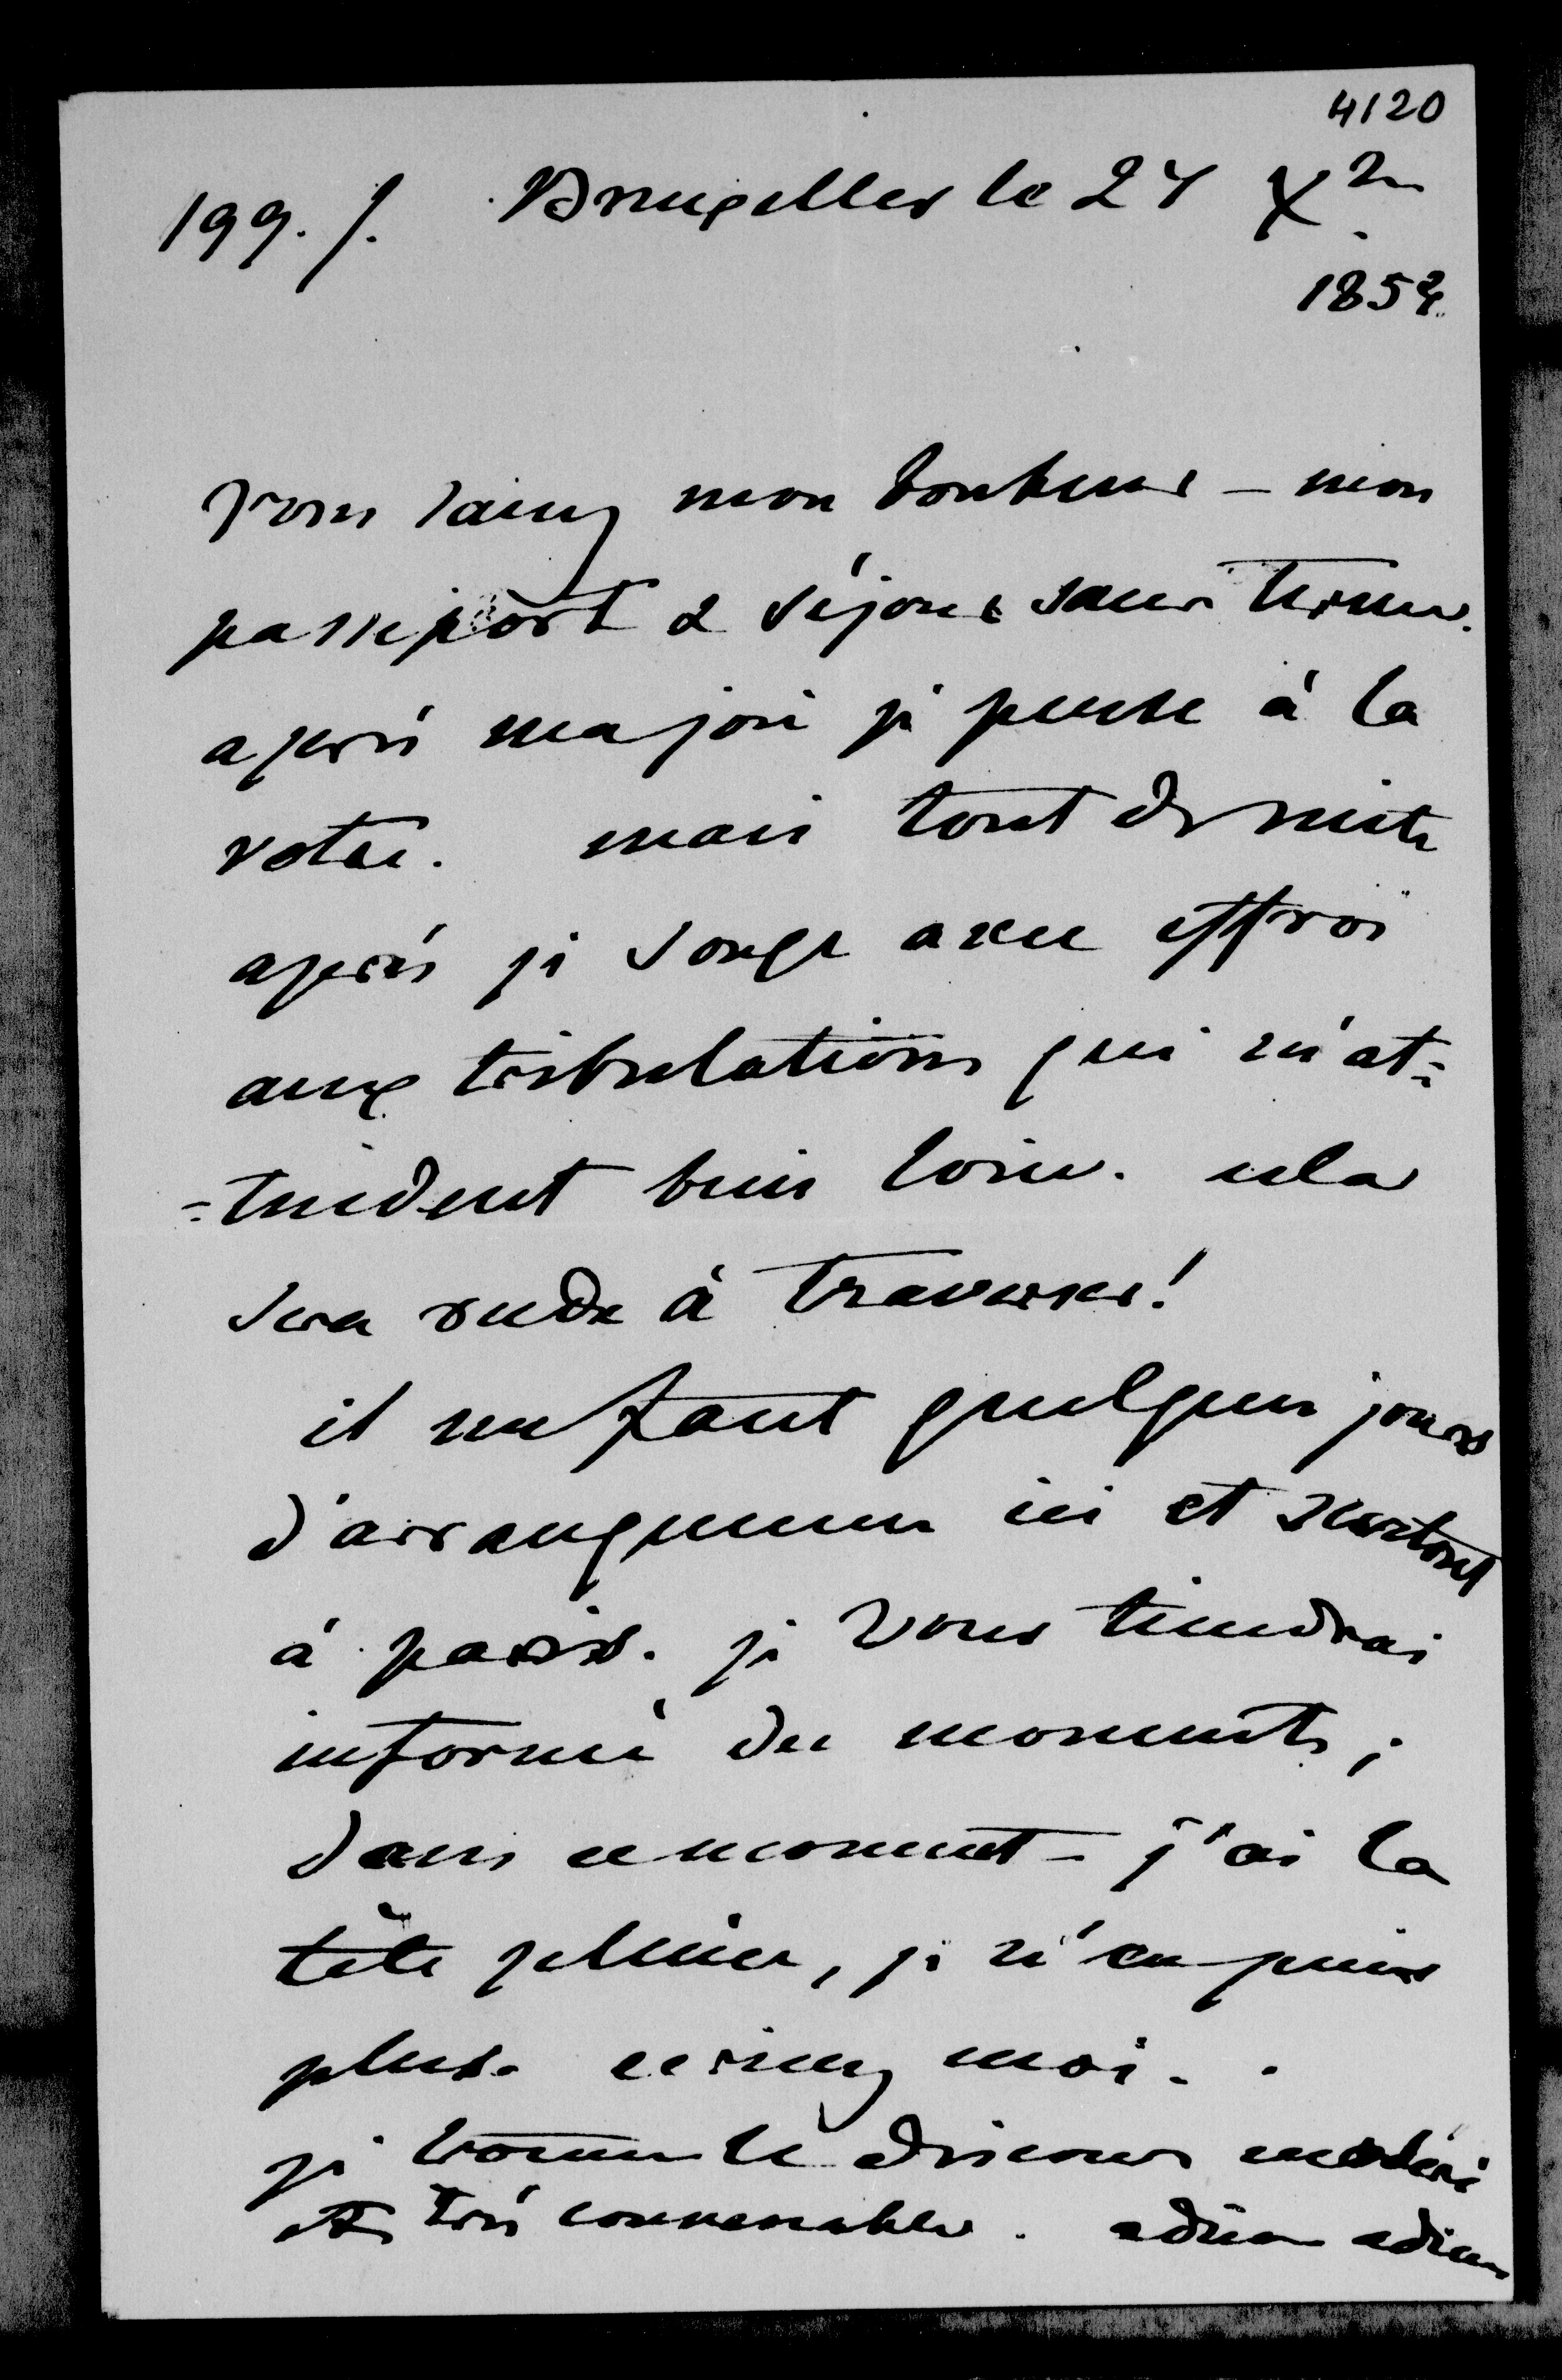 4120
199. /. Bruxelles le 24 Xbre
1853
vous savez mon bonheur – mon
passeport & séjour sans terme.
après ma joie je pense à la
votre. mais tout de suite
après je songe avec effroi
aux tribulations qui m'at=
=tendent bien loin. cela
sera rude à traverser!
il me faut quelques jours
d'arrangemens ici et surtout
à paris. je vous tiendrai
informé du moment;
dans ce moment – j'ai la
tête pleine, je n'en puis
plus. ecrivez moi.
je trouve le discours modéré
et très convenable. adieu adieu